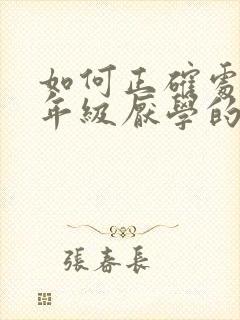 如何正確處
年級厭學的
張春長